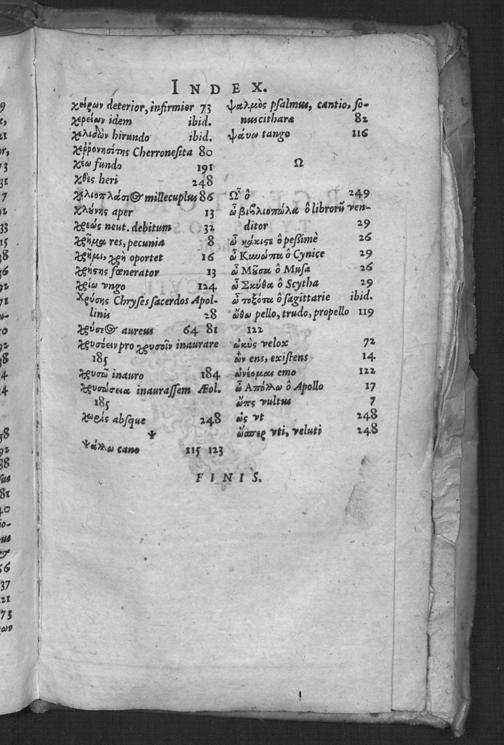 INDEX.
χείρων deterior, infirmior 73
χερείων idem ibid.
χελιδὼν hirundo ibid.
χεῤῥονησίτης Cherronesita 80
χέω fundo 191
χθὲς heri 248
χιλιοπλάσιος millecuplus 86
χλύνης aper 13
χρεὼς neut. debitum 32
χρῆμα res, pecunia 8
χρῆμι, χρὴ oportet 16
χρήστης fœnerator 13
χρίω vngo 124
Χρύσης Chryses sacerdos Apol-
linis 28
χρύσεος aureus 64 81
χρυσόειν pro χρυσοῖν inaurare
185
χρυσῶ inauro 184
χρυσώσεια inaurassem Æol.
185
χωρὶς absque 248
Ψ
Ψάλλω cano 115 123
ψαλμὸς psalmus, cantio, so-
nus citharæ 82
ψάυω tango 116
Ω
Ὦ ὁ 249
ὦ βιβλιοπώλα ô librorū ven-
ditor 29
ὦ κάκιστε ô pessimè 26
ὦ Κυνῶπα ô Cynice 29
ὦ Μοῦσα ô Musa 26
ὦ Σκύθα ô Scytha 29
ὦ τοξότα ô sagittarie ibid.
ὤθω pello, trudo, propello 119
122
ὠκὺς velox 72
ὢν ens, existens 14
ὠνέομαι emo 122
ὦ Ἀπόλλω ô Apollo 17
ὤψ vultus 7
ὡς vt 248
ὥσπερ vti, veluti 248
FINIS.